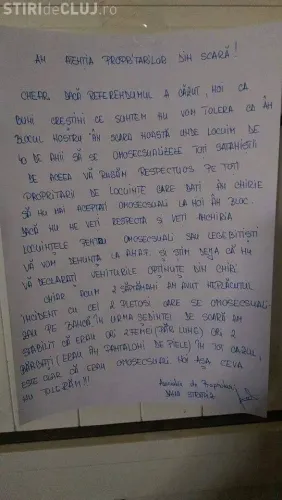 ȘTIRIdeCLUJ.ro
AM ATENȚIA PROPRITARILOR DIN SCARĂ!
CHEAR DACĂ REFERENDUMUL A CĂZUT, NOI CA
BUNI CREȘTINI CE SUNTEM NU VOM TOLERA CA ÎN
BLOCUL NOSTRU ÎN SCARA NOASTRĂ UNDE LOCUIM DE
40 DE ANII SĂ SE OMOSECSUALIZELE TOȚI SATANIȘTII
DE ACEEA VĂ RUGĂM RESPECTUOS PE TOȚI
PROPRITARII DE LOCUINȚE CARE DAȚI ÎN CHIRIE
SĂ NU MAI ACEPTAȚI OMOSECSUALI LA NOI ÎN BLOC.
DACĂ NU NE VEȚI RESPECTA ȘI VEȚI ÎNCHIRIA
LOCUINȚELE PENTRU OMOSECSUALI SAU LEGEBITIȘTI
VĂ VOM DENUNȚA LA ANAF. ȘI ȘTIM DEJA CĂ NU
VĂ DECLARAȚI VENITURILE OPȚINUTE DIN CHIRI.
CHIAR ACUM 2 SĂPTĂMÂNI AM AVUT NEPLĂCUTUL
INCIDENT CU CEI 2 PLETOSI CARE SE OMOSECSUALI-
ZAU PE BANCĂ, ÎN URMA ȘEDINȚEI DE SCARĂ AM
STABILIT CĂ ERAU ORI 2 FEMEI (PĂR LUNG) ORI 2
BĂRBAȚI (ERAU ÎN PANTALONI DE PIELE) ÎN TOT CAZUL,
ESTE CLAR CĂ ERAU OMOSECSUALI NOI AȘA CEVA
NU TOLERĂM!!!
de Proprietari